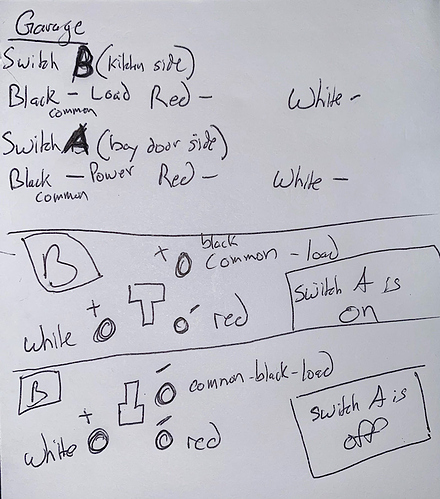 Garage
Switch B (kitchen side)
Black - Load Red - White -
common
Switch A (bay door side)
Black - Power Red - White -
common
B
+ black
common - load
Switch A is
on
+
white - red
B
- common-black-load
+
white - red
Switch A is
off